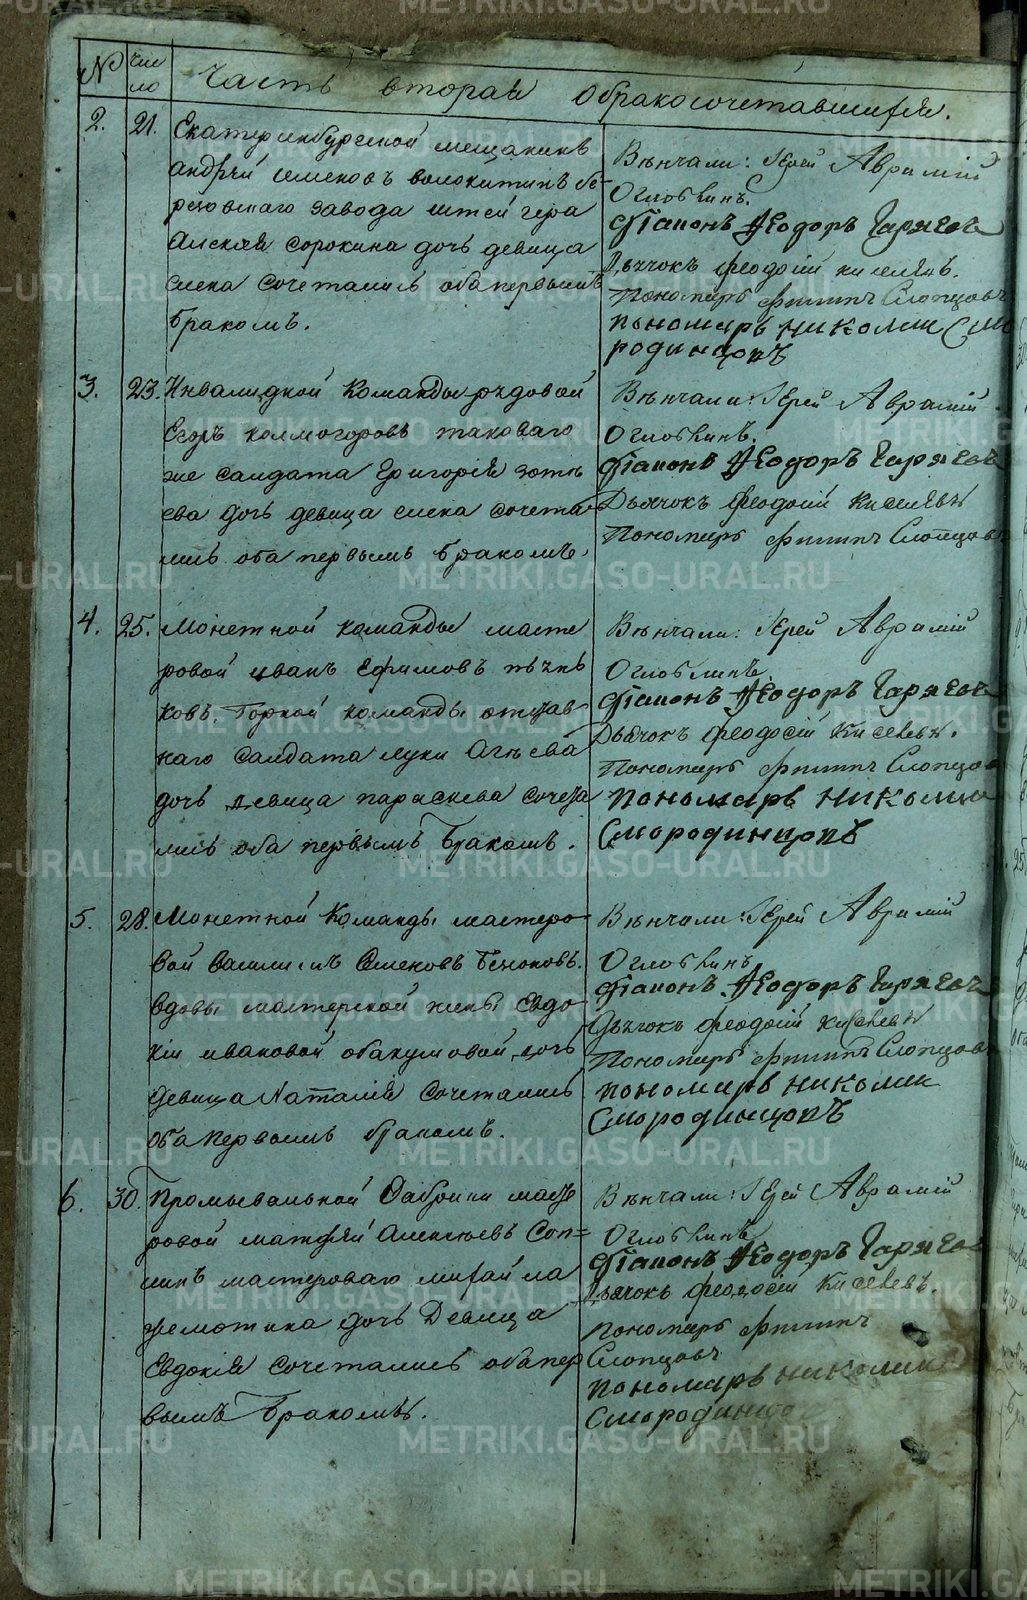 № Чис
ло Часть вторая о бракосочетавшихся.
2. 21. Екатеринбургской мещанинъ
андрей семеновъ волокитинъ бе-
резовскаго завода штейгера
Алексея сорокина дочь девица
елена сочетались оба первымъ
бракомъ.
Вѣнчали: Іерей Аврамій
Оглоблинъ.
Діаконъ Ѳеодоръ Гаряевъ
Дьячокъ феодосій киселевъ.
Пономарь филипъ Слопцовъ
пономарь николай Смо
родинцовъ
3. 23. Инвалидной Команды рядовой
Егоръ колмогоровъ таковаго
же салдата Григорія зоть
ева дочь девица елена сочета
лись оба первымъ бракомъ.
Вѣнчали: Іерей Аврамій
Оглоблинъ.
Діаконъ Ѳеодоръ Гаряевъ
Дьячокъ феодосій Киселевъ
Пономарь филипъ Слопцовъ
4. 25. Монетной команды масте
ровой иванъ Ефимовъ
ковъ. Горной команды отстав
наго салдата луки Агѣева
дочь девица параскева сочета
лись оба первымъ бракомъ.
Вѣнчали: Іерей Аврамій
Оглоблинъ.
Діаконъ Ѳеодоръ Гаряевъ
Дьячокъ феодосій Киселевъ.
Пономарь филипъ Слопцовъ
пономарь николай
Смородинцовъ
5. 28. Монетной Команды мастеро-
вой василий Семеновъ
вдовы мастерской жены Евдо
кіи ивановой обакумовой дочь
девица Наталія сочетались
оба первымъ бракомъ.
Вѣнчали: Іерей Аврамій
Оглоблинъ
Діаконъ Ѳеодоръ Гаряевъ
Дьячокъ феодосій киселевъ
Пономарь филипъ Слопцовъ
пономарь николай
Смородинцовъ
6. 30. Промывальной Фабрики масте
ровой матфей Алексеевъ Соп-
линъ мастероваго михайла
дочь Девица
Евдокія сочетались оба пер
вымъ бракомъ.
Вѣнчали: Іерей Аврамій
Оглоблинъ
Діаконъ Ѳеодоръ Гаряевъ
Дьячокъ феодосій Киселевъ.
пономарь филипъ
Слопцовъ
пономарь николай
Смородинцо
METRIKI.GASO-URAL.RU